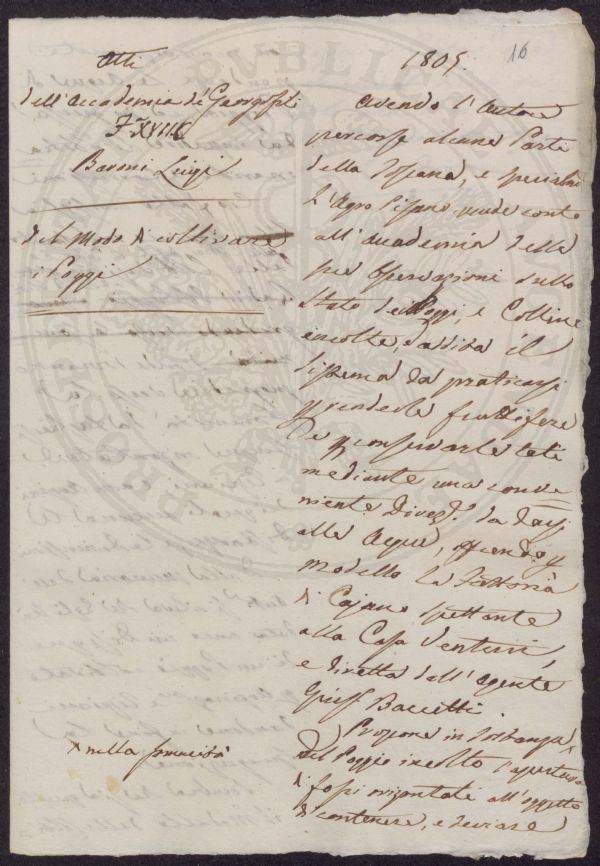 16
Atti
dell'Accademia de' Georgofili
T. XVIII
Baroni Luigi
del Modo di coltivare
i Poggi
x nella sommità
1805.
Avendo l'Autore
percorse alcune Parti
della Toscana, e specialm.
l'Agro Pisano, rende conto
all'Accademia delle
sue Operazioni sullo
Stato dei Poggi, e Colline
incolte, ed addita il
sistema da praticarsi
p renderle fruttifere
e p conservarle tali
mediante una conve
niente Direz.e da darsi
alle Acque, p
modello la Fattoria
di Cajano spettante
alla Casa Venturi,
e diretta dall'agente
Gius. Baccetti
Propone in sostanza x
del Poggio incolto l'apertura
di fossi orizontali all'oggetto
di contenere, e deviare